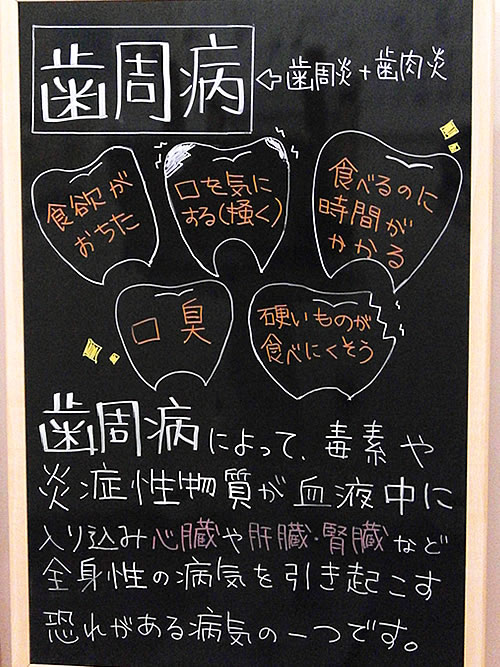 歯周病
⇦歯周炎+歯肉炎
食欲が
おちた
口を気に
する(掻く)
食べるのに
時間が
かかる
口臭
硬いものが
食べにくそう
歯周病によって、毒素や
炎症性物質が血液中に
入り込み心臓や肝臓・腎臓など
全身性の病気を引き起こす
恐れがある病気の一つです。